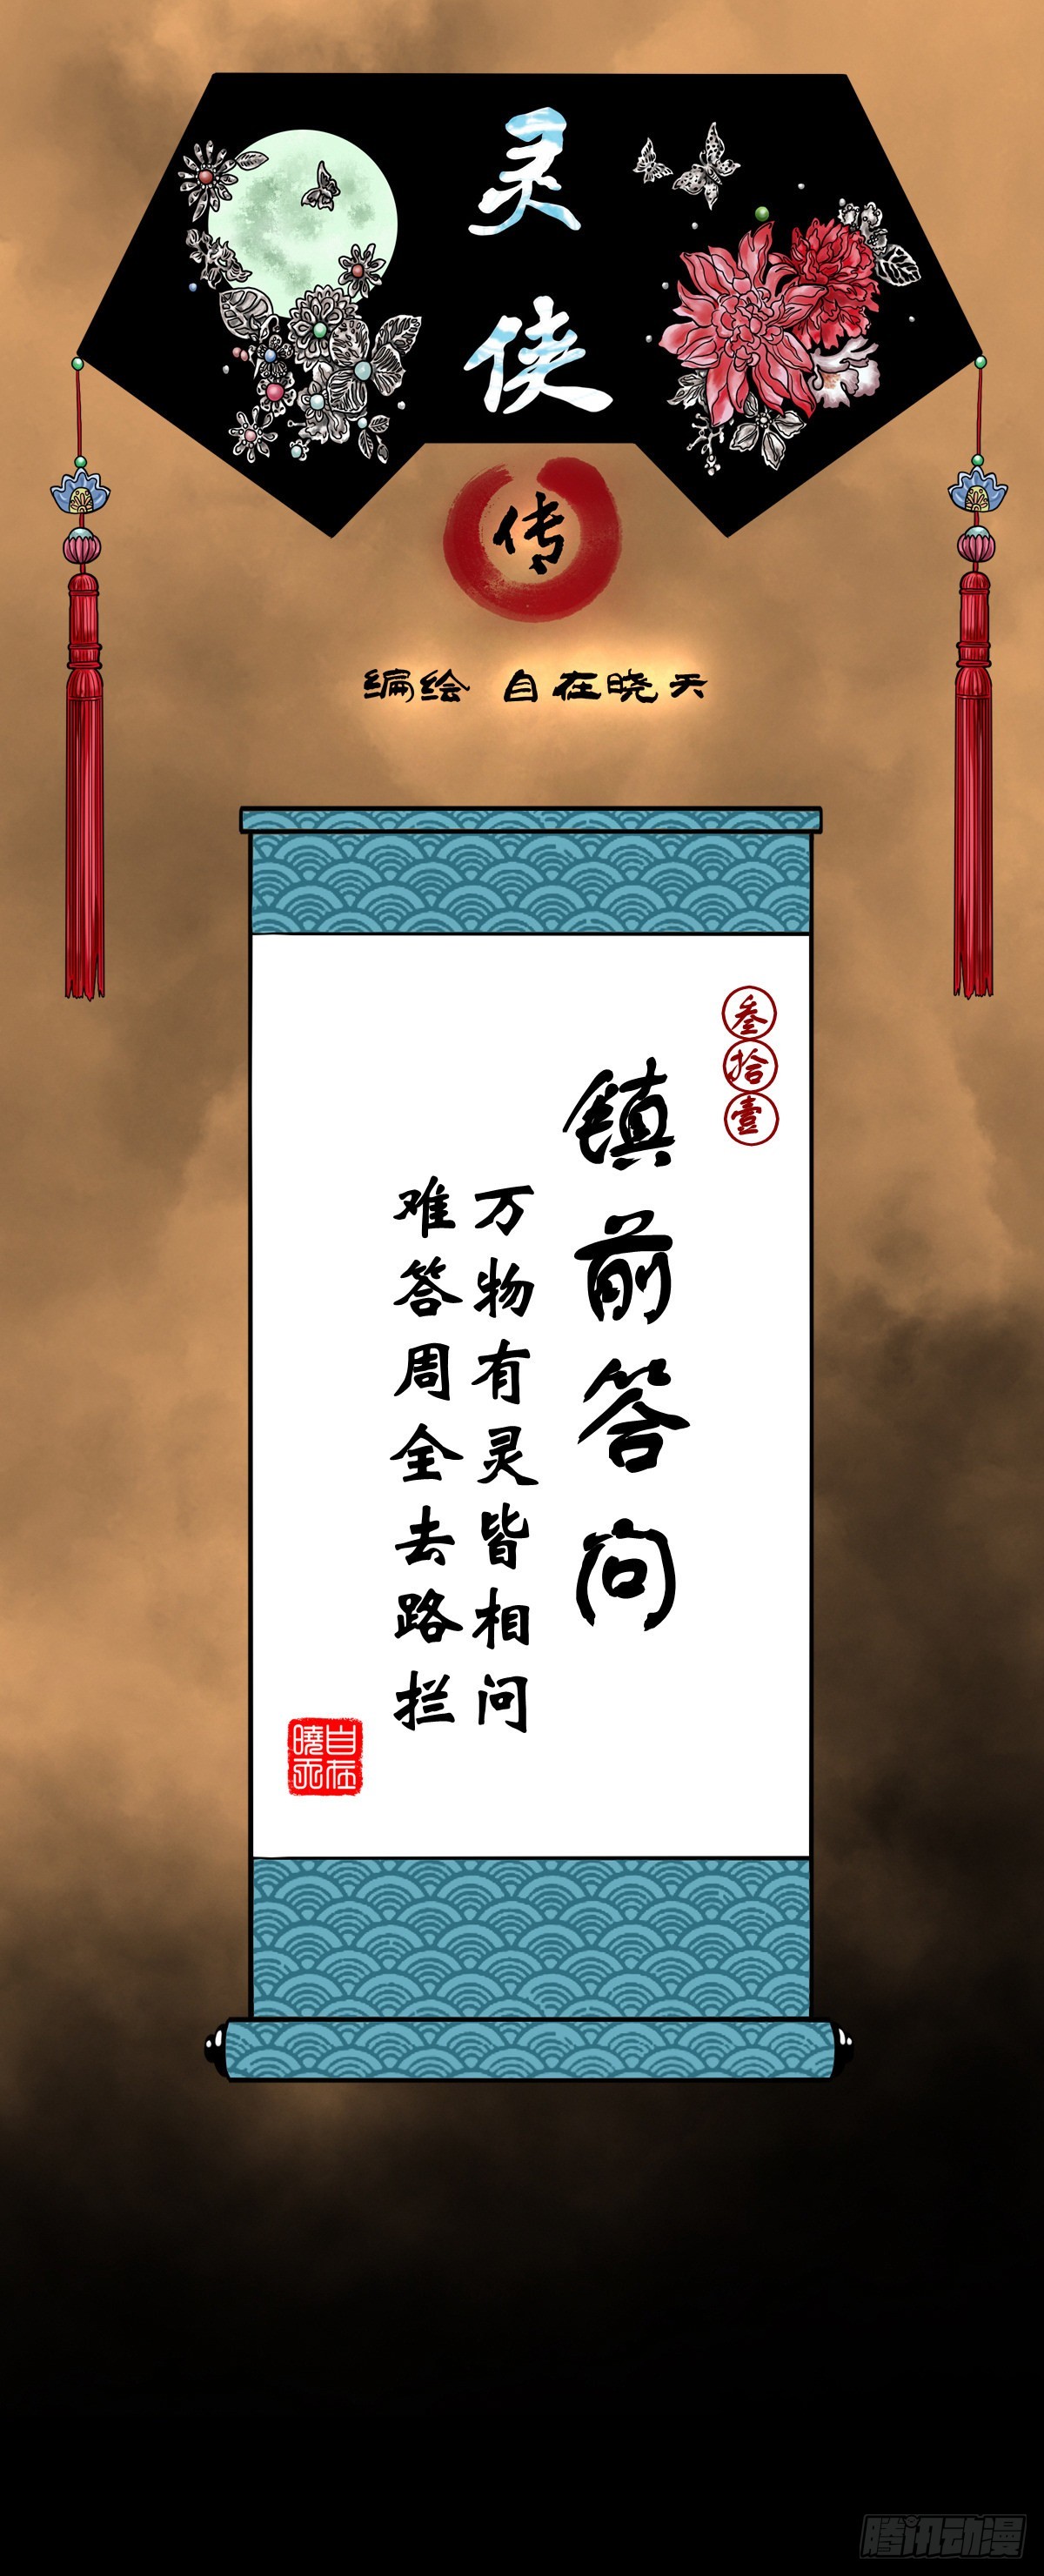 灵侠
传
编绘 自在晓天
叁拾壹
镇前答问
万物有灵皆相问
难答周全去路拦
自在曉天
腾讯动漫